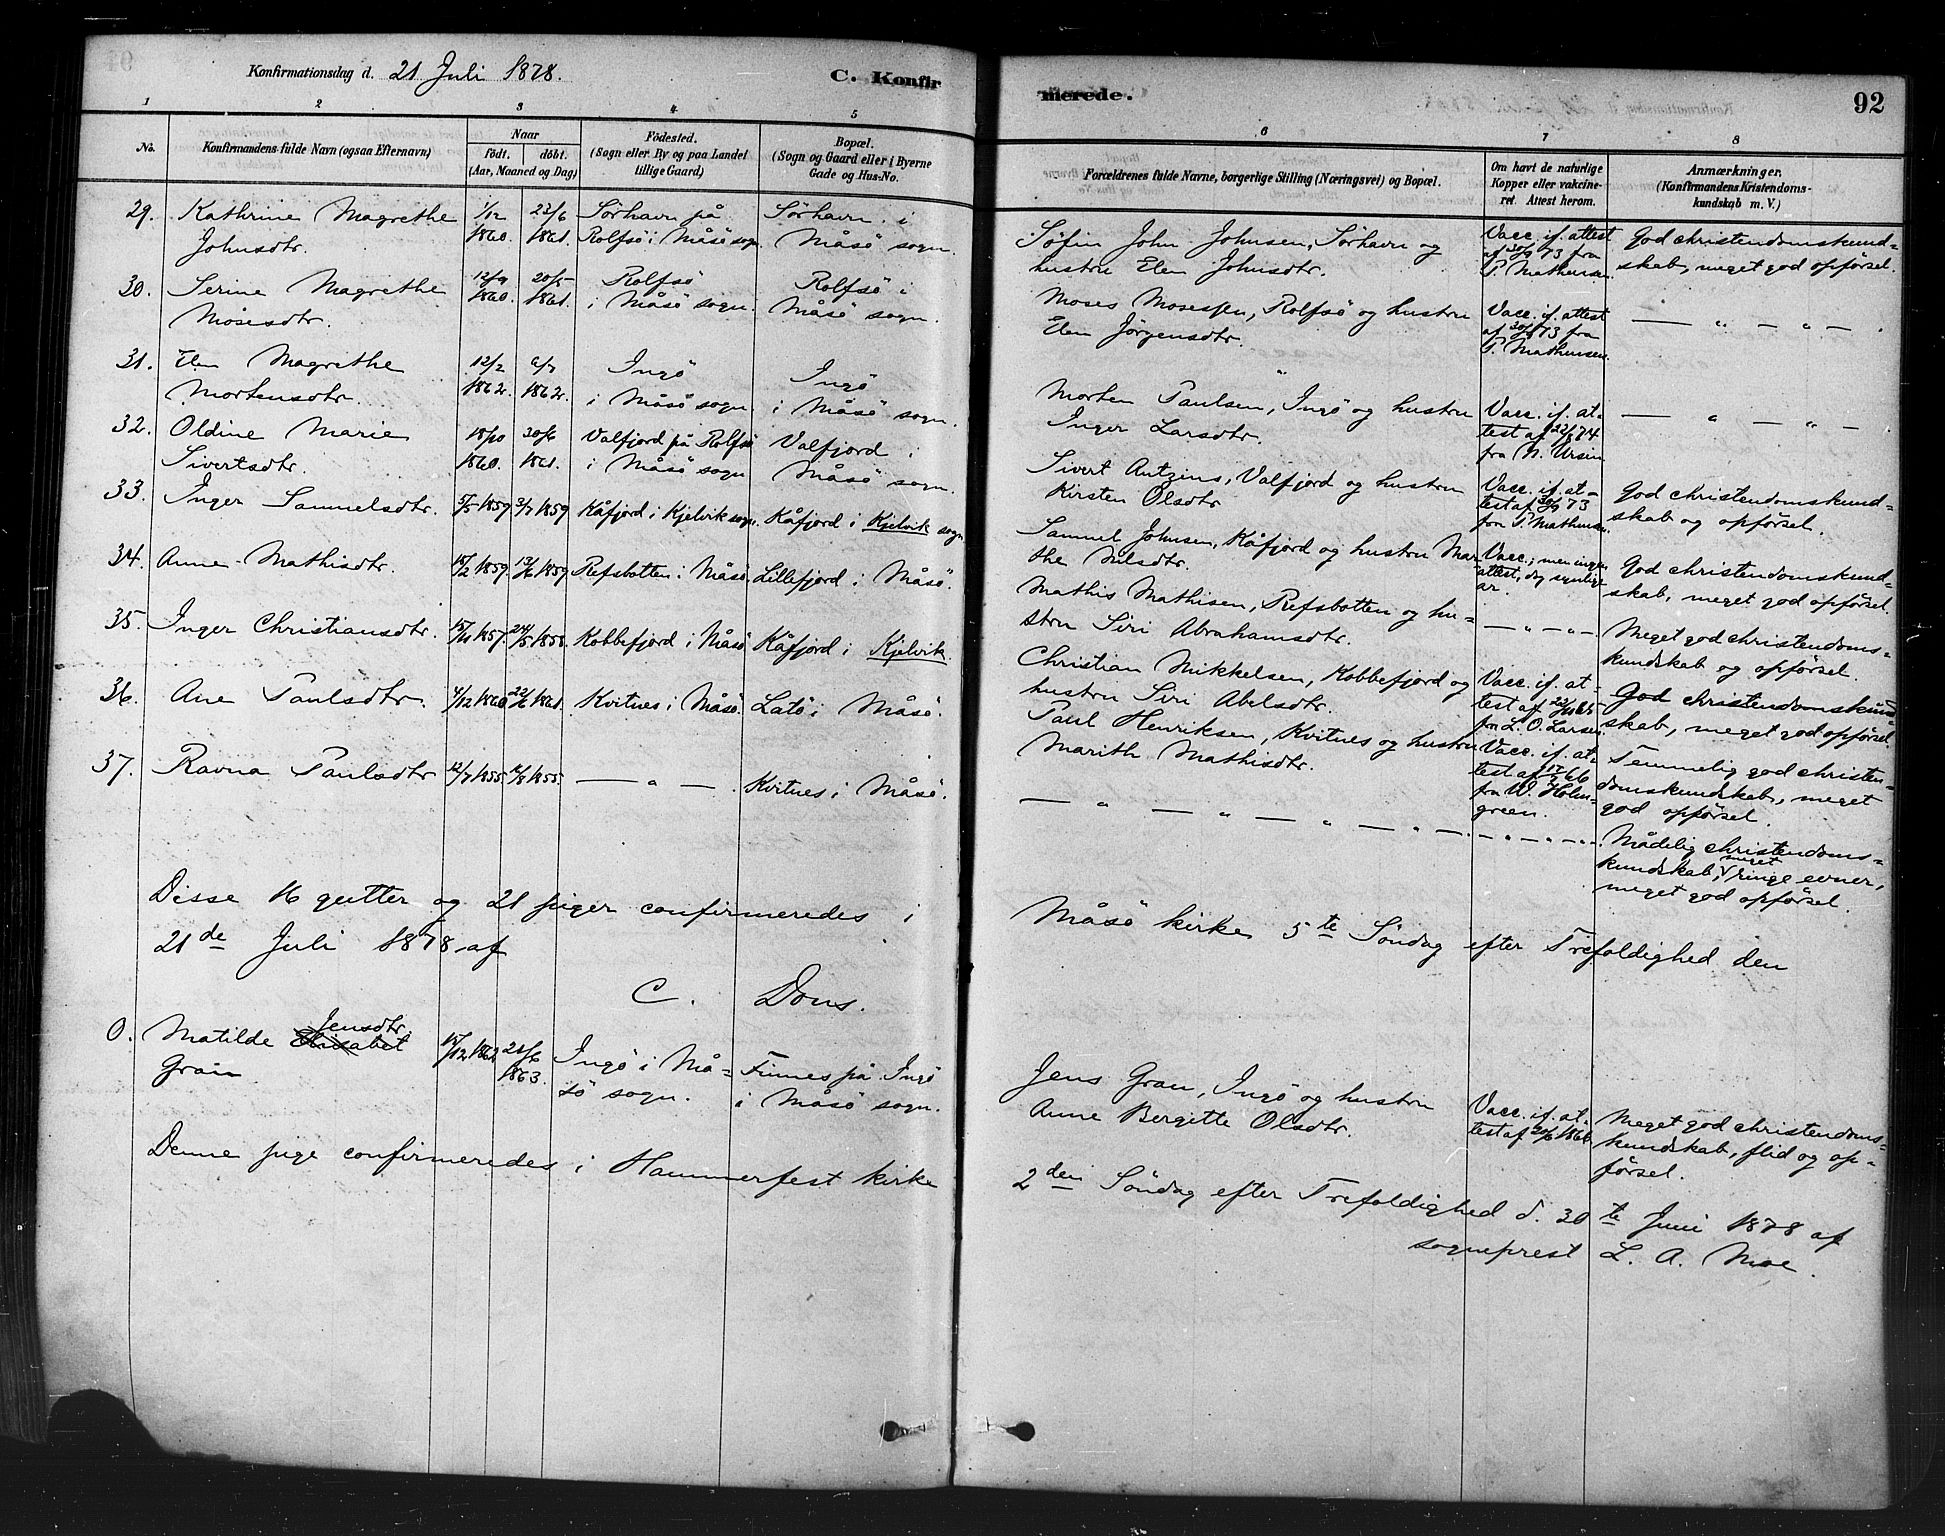 Konfirmationsdag d. 21 Juli 1878.
C. Konfir
merede.
92
1 2 3 4 5
6 7 8
No.
Konfirmandens fulde Navn (ogsaa Efternavn)
Naar
födt. döbt.
(Aar, Maaned og Dag)
Födested.
(Sogn eller By og paa Landet
tillige Gaard)
Bopæl.
(Sogn og Gaard eller i Byerne
Gade og Hus-No.
Forældrenes fulde Navne, borgerlige Stilling (Næringsvei) og Bopæl.
Om havt de naturlige
Kopper eller vakcine-
ret. Attest herom.
Anmærkninger.
(Konfirmandens Kristendoms-
kundskab m. V.)
29. Kathrine Magrethe 1/12 23/6 Sørhavn på Sørhavn i
Johnsdtr. 1860. 1861. Rolfsö i Måsö sogn. Måsö sogn.
Søfin John Johnsen, Sørhavn og Vacc. if. attest God christendomskund-
hustru Elen Johnsdtr. af 30/6 73 fra skab, meget god opførsel.
P. Mathiesen.
30. Serine Magrethe 12/9 20/5 Rolfsö Rolfsö i
Mosesdtr. 1860. 1861. i Måsö sogn. Måsö sogn.
Moses Mosessen, Rolfsö og hustru Vacc. if. attest — " — " — .
Elen Jørgensdtr. af 30/6 73 fra
P. Mathiesen.
31. Elen Magrethe 12/2 6/7 Ingö Ingö
Mortensdtr. 1862. 1862. i Måsö sogn i Måsö sogn.
Morten Paulsen, Ingö og hustru Vacc. if. at- — " — " —
Inger Larsdtr. test af 22/8 74
fra N. Ursin
32. Oldine Marie 18/10 30/6 Valfjord på Rolfsö Valfjord i
Sivertsdtr. 1860. 1861. i Måsö sogn Måsö sogn.
Sivert Antzins, Valfjord og hustru Vacc. if. at- God christendomskund-
Kirsten Olsdtr test af 30/6 73 skab og opførsel.
fra P. Mathiesen.
33. Inger Samuelsdtr. 5/5 1859 3/7 1859 Kåfjord i Kjelvik sogn. Kåfjord i Kjelvik sogn
Samuel Johnsen, Kåfjord og hustru Mar- Vacc; men ingen God christendomskund-
the Nilsdtr. attest, dog synlige skab, meget god opførsel.
ar.
34. Anne Mathisdtr. 15/2 1859 13/6 1859 Refsbotten i Måsö Lillefjord i Måsö.
Mathis Mathisen, Refsbotten og hu- — " — " — . Meget god christendoms-
stru Siri Abrahamsdtr. kundskab og opførsel.
35. Inger Christiansdtr. 15/11 1857 24/5 1858. Kobbefjord i Måsö Kåfjord i Kjelvik.
Christian Mikkelsen, Kobbefjord og Vacc. if. at- God christendomskund-
hustru Siri Abelsdtr. test af skab, meget god opførsel.
fra L. O. Larsen.
36. Ane Paulsdtr. 4/12 1860 22/6 1861. Kvitnes i Måsö. Latö i Måsö.
Paul Henriksen, Kvitnes og hustru Vacc. if. at- Temmelig god christen-
Marith Mathisdtr. test af 17/9 66 domskundskab, meget
fra W. Holm- god opførsel.
green.
37. Ravna Paulsdtr 12/7 1855 12/8 1855. — " — . Kvitnes i Måsö.
— " — " — " — " — . — " — " — . Mådelig christendoms-
kundskab, meget ringe evner,
meget god opførsel.
Disse 16 gutter og 21 piger confirmeredes i
21de Juli 1878 af
C. Dons.
Måsö kirke 5te Søndag efter Trefoldighed den
0. Matilde Elisabet Jensdtr. 15/12 1862 21/6 Ingö i Må- Finnes på Ingö
Gran 1863. sö sogn. i Måsö sogn.
Jens Gran, Ingö og hustru Vacc. if. at- Meget god christendoms-
Anne Bergitte Olsdtr. test af kundskab, flid og op-
førsel.
Denne pige confirmeredes i Hammerfest kirke
2den Søndag efter Trefoldighed d. 30te Juni 1878 af
sogneprest L. A. Moe.